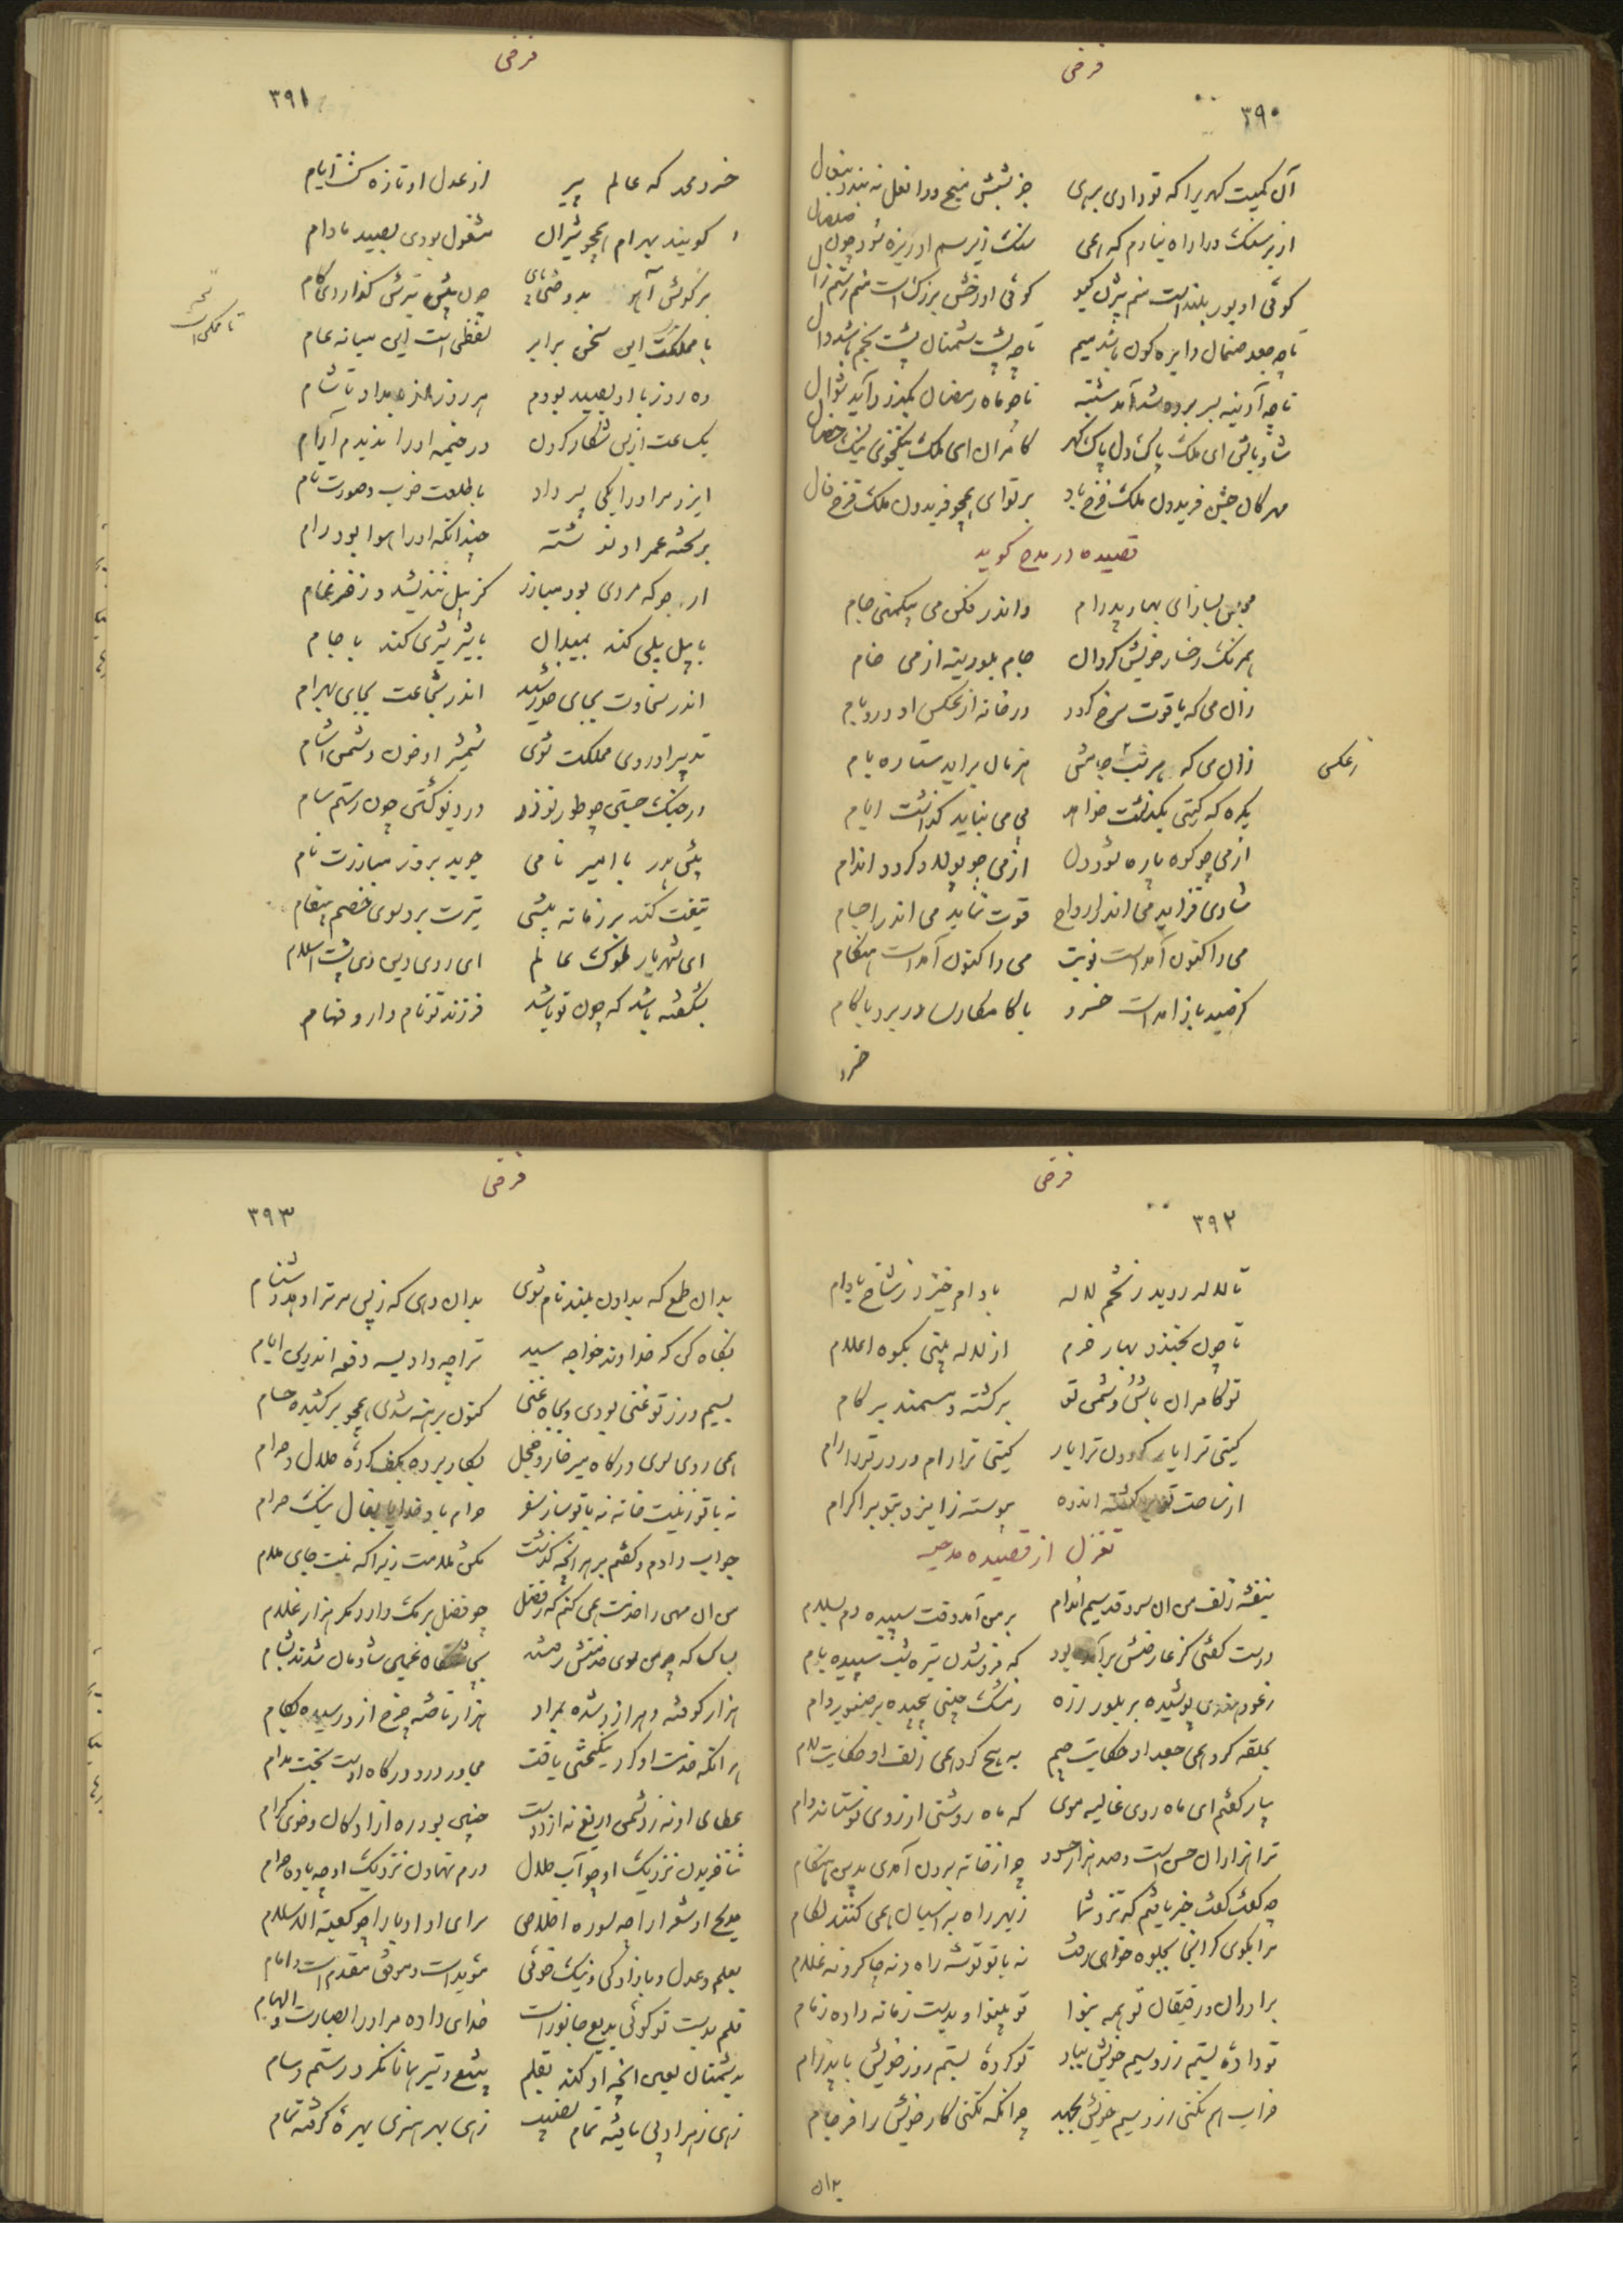 فرخی
۳۹۰
آن کمیت کهریرا که تو دادی برهی جز بشش میخ ورا نعل نه بندد بنعال
از بر سنگ ورا راه نیارم که همی سنگ زیر سم او ریزه شود چون صلصال
گوئی او پور بلنداست منم بیژن گیو گوئی او رخش بزرگ است منم رستم زال
تا چو جعد صنمان دایره گون باشد میم تا چو پشت شمنان پشت بخم باشد دال
تا چو آدینه بسر برده شد آید شنبه تا چو ماه رمضان بگذرد آید شوال
شاد باش ای ملک پاک دل پاک گهر کامران ای ملک نیکخوی نیک خصال
مهرگان جشن فریدون ملک فرخ باد بر تو ای همچو فریدون ملک فرخ فال
قصیده در مدح گوید
می پیش بسازای بهار پدرام واندر فکن می بیکمنی جام
همرنگ رخسار خویش گردان جام بلورینه از می خام
زان می که یاقوت سرخ گردد در خانه از عکس او در و بام
زان می که هر شب ز جامش هر زمان برآید ستاره بام
زعکس
یکره که گیتی بگذشت خواهد بی می نباید گذاشت ایام
از می چو کوه پاره شود دل از می چو پولاد گردد اندام
شادی فزاید می اندر ارواح قوت نماید می اندر اجسام
می را کنون آمداست نوبت می را کنون آمداست هنگام
کز صید باز آمداست خسرو با کامکاری و بر بکام
خسرو
فرخی
۳۹۱
خسرو محمد که عالم پیر از عدل او تازه گشت ایام
گویند بهرام همچو شیران مشغول بودی بصید مادام
بر گوش آهو بدوختی پای چون پیش تیرش گذاردی گام
نسخه
تا ملکست
با مملکت این سخن برابر لفظی است این میانه عام
ده روز با او بصید بودم هر روز از بامداد تا شام
یک ساعت از بس شکار کردن در خیمه اورا ندیدم آرام
ایزد مر اورا یکی پسر داد با طلعت خوب و صورت نام
بر تخته عمر او نوشته چندانکه اورا هوا بود رام
ارجو که مردی بود مبارز کز پیل نندیشد و ز ضرغام
با پیل پیلی کند بمیدان با شیر شیری کند باجام
اندر سخاوت بجای خورشید اندر شجاعت بجای بهرام
تدبیر او روی مملکت شوی شمشیر او خون دشمن آشام
در جنگ جستی چو طوس نوذر در دیو کشتی چون رستم سام
پیش پدر با امیر نامی جوید بروز مبارزت نام
تیغت کند بر زمانه پیشی تیرت برد سوی خصم پیغام
ای شهریار ملوک عالم ای روی دین وی پشت اسلام
بشگفته باشد که چون تو باشد فرزند تو نام دار و فهام
فرخی
۳۹۲
تا لاله روید ز تخم لاله بادام خیزد ز شاخ بادام
تا چون بخندد بهار خرم از لاله بینی بکوه اعلام
تو کامران باش و دشمن تو برگشته و مستمند بر کام
گیتی ترا یار گردون ترا یار گیتی ترا رام و دور ترا رام
از ساحت تو گسسته اندوه پیوسته ز ایزد بتو بر اکرام
تغزل از قصیده مدحیه
بنفشه زلف من ان سرو قد سیم اندام بر من آمد وقت سپیده دم بسلام
درست گفتی کز عارضش برآمده بود که فرو شدن تیره شب سپیده بام
ز عود هندی پوشیده بر بلور زره ز مشک چینی پیچیده بر صنوبر دام
بحلقه کرده همی جعد او حکایت جیم به پیچ کرده همی زلف او حکایت لام
بیار گفتم ای ماه روی غالیه موی که ماه روشنی از روی تو ستاند وام
ترا هزاران حسن است و صد هزار حسود چرا ز خانه برون آمدی بدین هنگام
چه گفت گفت خبر یافتم که نزد شما زبهر راه بر اسبان همی کنند لگام
مرا بگوی کز اینجا بجلوه خواهی رفت نه با تو توشه راه و نه چاکر و نه غلام
برادران و رفیقان تو همه بنوا تو بینوا و بدست زمانه داده زمام
تو داده ای بستم زر و سیم خویش بباد تو کرده ای بستم روز خویش نا پدرام
خراب هم نکنی زر و سیم خویش بجهد چرا نکه نکنی کار خویش را فرجام
بدان
فرخی
۳۹۳
بدان طمع که بدادن بلند نام شوی بدان دهی که ز پس مر ترا دهد دشنام
نگاه کن که خداوند خواجه سید ترا چه داد بیسه دفعه اندرین ایام
بسیم و زر تو غنی بودی و بجاه غنی کنون برهنه شدی همچو برکشیده حسام
همی روی سوی درگاه میر خار و خجل بکار برده بکف کرده حلال و حرام
نه با تو زینت خانه نه با تو ساز سفر حرام باد خدایا بفال نیک حرام
جواب دادم و گفتم بر هر انچه گذشت مکن ملامت زیرا که نیست جای ملام
من ان مهی را خدمت همی کنم که ز فضل چو فضل برمک دارد بدر هزار غلام
بسا کسا که چو من سوی خدمتش رفتند بچاشتگاه غمین شادمان شدند بشام
هزار کوفته دهر ازو شده بمراد هزار تافته چرخ ازو رسیده بکام
هر انکه خدمت او کرد نیکبختی یافت مجاور در و درگاه اوست تخت مدام
عطای او نه ز دشمن دریغ نه از دوست چنین بود ره ازادگان و خوی کرام
ثنا خریدن نزدیک او چو آب حلال درم نهادن نزدیک او چو باده حرام
مدیح او شعرا را چو سوره اخلاص سرای او ادبا را چو کعبه الاسلام
بعلم و عدل و بازادگی و نیک خوئی مؤیداست و موفق مقدم است و امام
قلم بدست تو گوئی بدیع جانوراست خدای داده مر اورا بصارت و الهام
بدشمنان لعین انچه او کند بقلم بتیغ و تیر همانا نکرد رستم و سام
زهی ز هر ادبی یافته تمام نصیب زهی بهر هنری بهره گرفته تمام